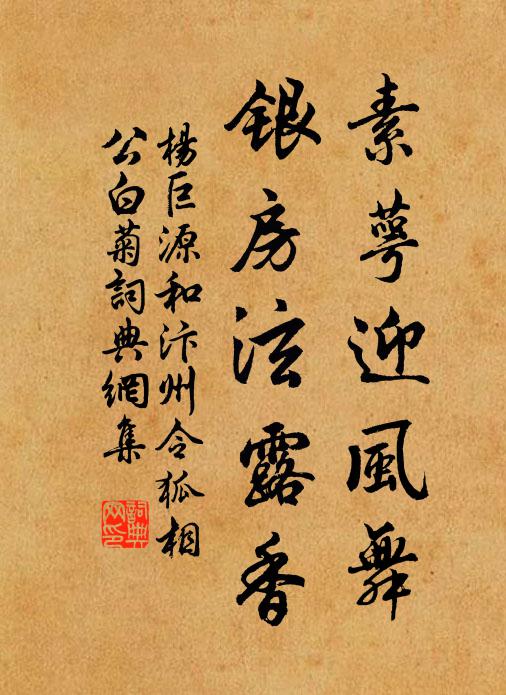 素萼迎風舞
銀房泫露香
楊巨源和汴州令狐相
公白菊詞典網集
詞典
网印